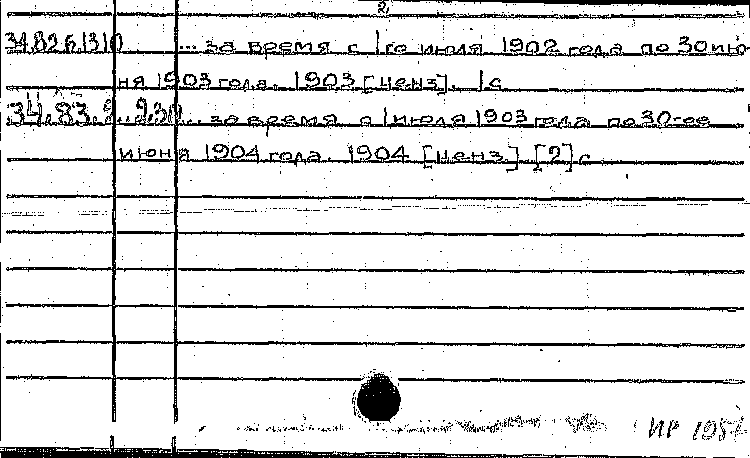 2
34.82.6.1310 ... за время с 1го июля 1902 года по 30 ию-
ня 1903 года. 1903 [ценз]. 1 с
34.83. ... за время с 1 июля 1903 года по 30-ое
июня 1904 года. 1904 [ценз] [2] с
ИР 108